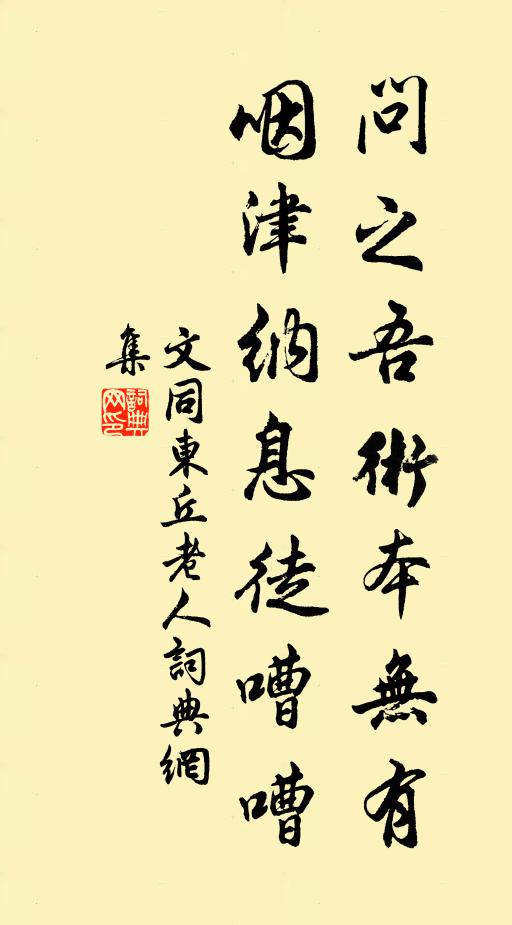 問之吾術本無有
咽津納息徒嘈嘈
文同東丘老人詞典網
集
詞典網印